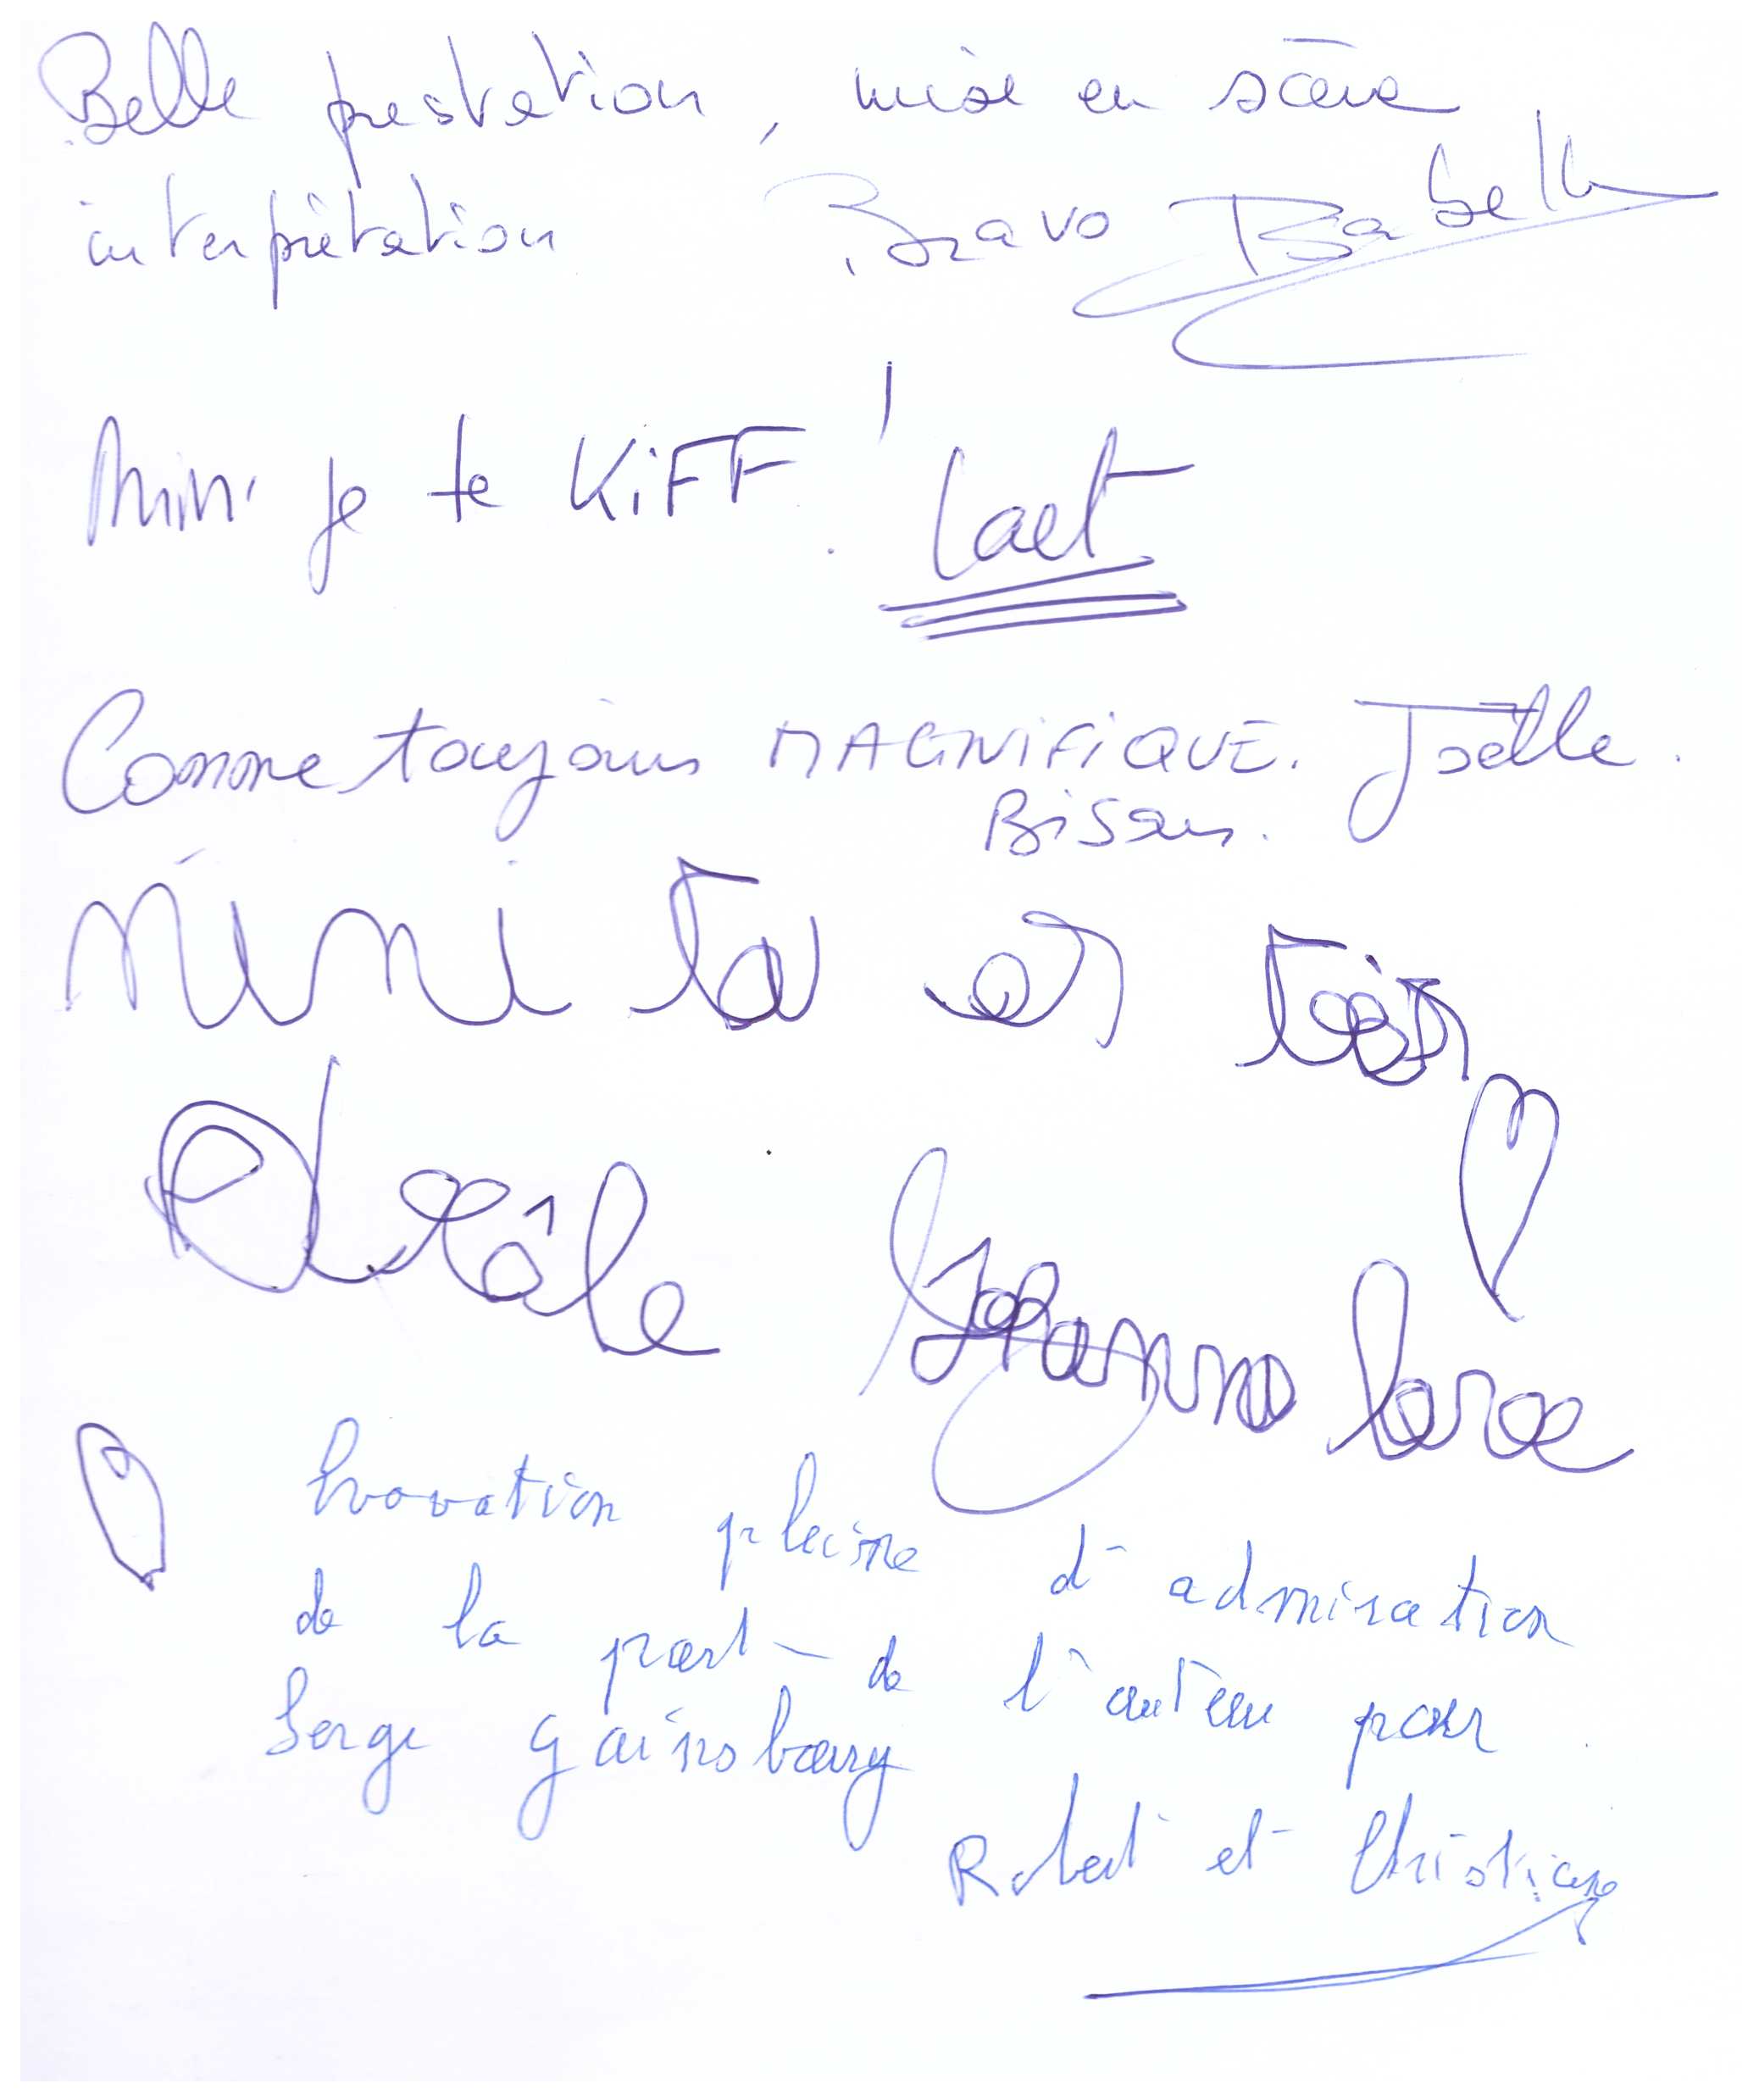 Belle prestation, mise en scène
interprétation Bravo Babell
Mimi je te KiFF ! Laet
Comme toujours MAGNiFiQUE. Joëlle.
Bisous.
Mimi ta et
Johanna Love
Inovation pleine d'admiration
de la part de l'auteur pour
Serge Gainsbourg
Robert et Christiane